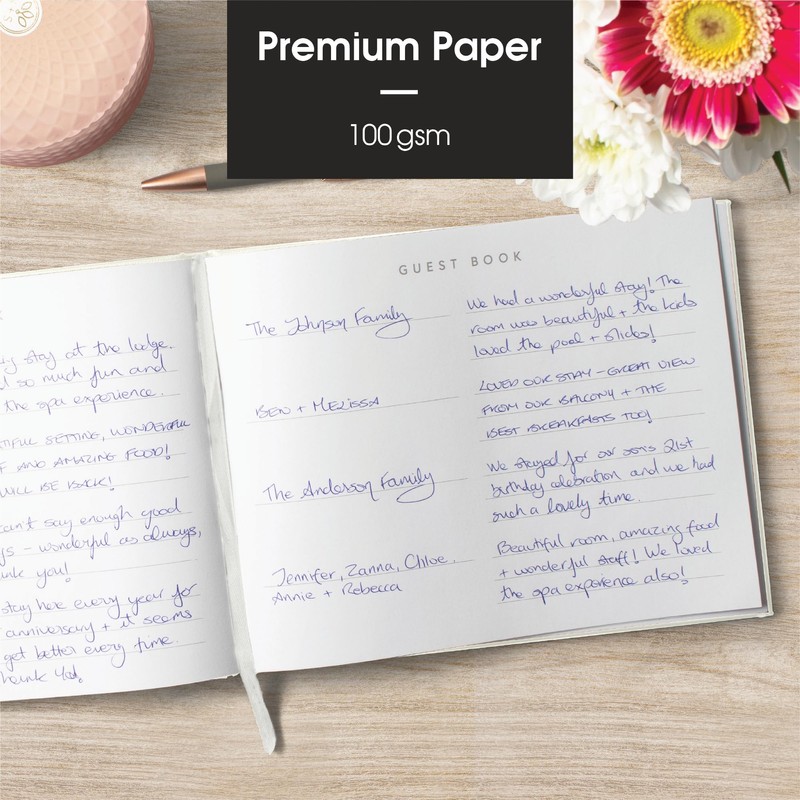 Premium Paper
100gsm
stay at the lodge.
so much fun and
the spa experience.
SETTING, WONDERFUL
AND AMAZING FOOD!
WILL BE BACK!
can't say enough good
- wonderful as always,
you!
stay here every year for
anniversary + it seems
get better every time.
You.
GUEST BOOK
The Johnson Family
We had a wonderful stay! The
room was beautiful + the kids
loved the pool + slides!
BEN + MELISSA
LOVED OUR STAY - GREAT VIEW
FROM OUR BALCONY + THE
BEST BREAKFASTS TOO!
The Anderson Family
We stayed for our son's 21st
birthday celebration and we had
such a lovely time.
Jennifer, Zanna, Chloe,
Annie + Rebecca
Beautiful room, amazing food
+ wonderful staff! We loved
the spa experience also!